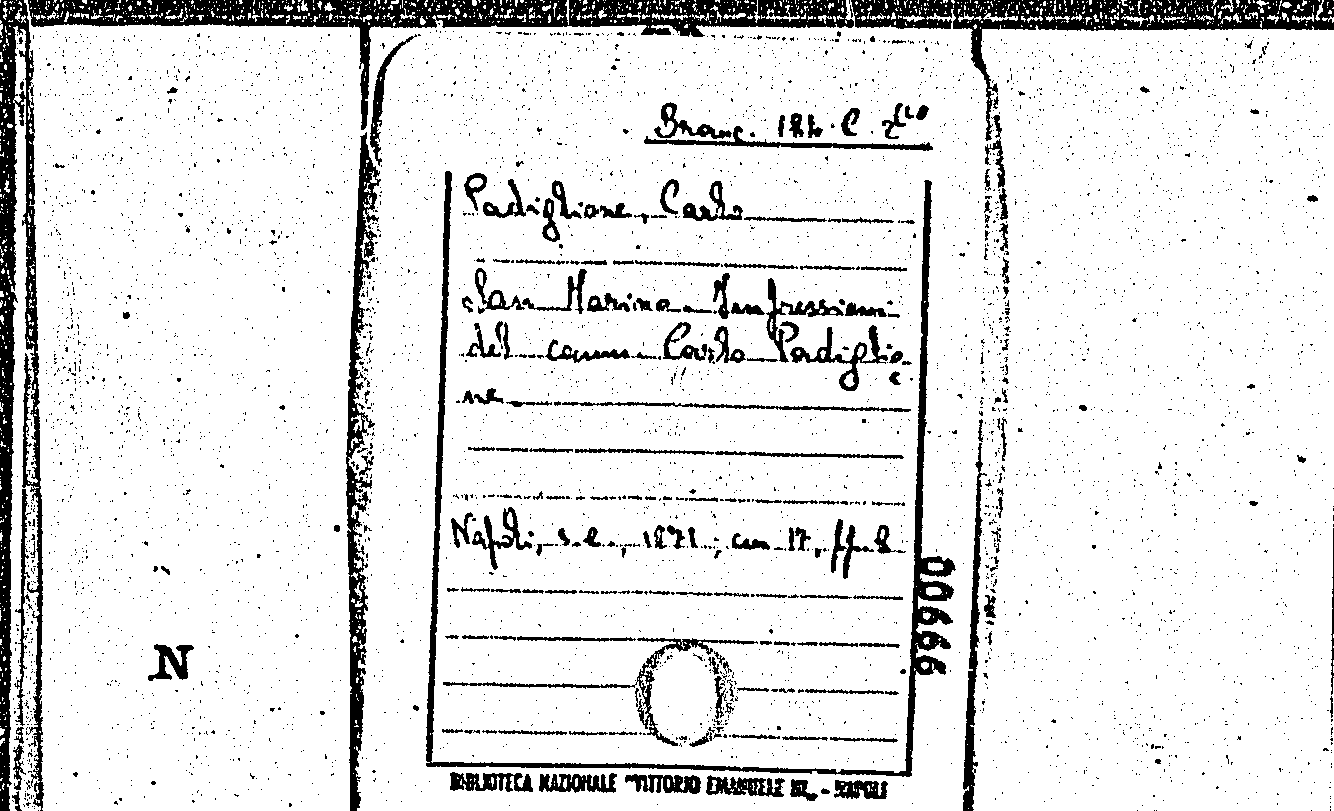 Branc. 184. C. 2(20
Padiglione, Carlo
San Marino. Impressioni
del comm. Carlo Padiglio
ne.
Napoli, s.e., 1871; cm 17, pp. 8
00666
N
BIBLIOTECA NAZIONALE "VITTORIO EMANUELE III" - NAPOLI